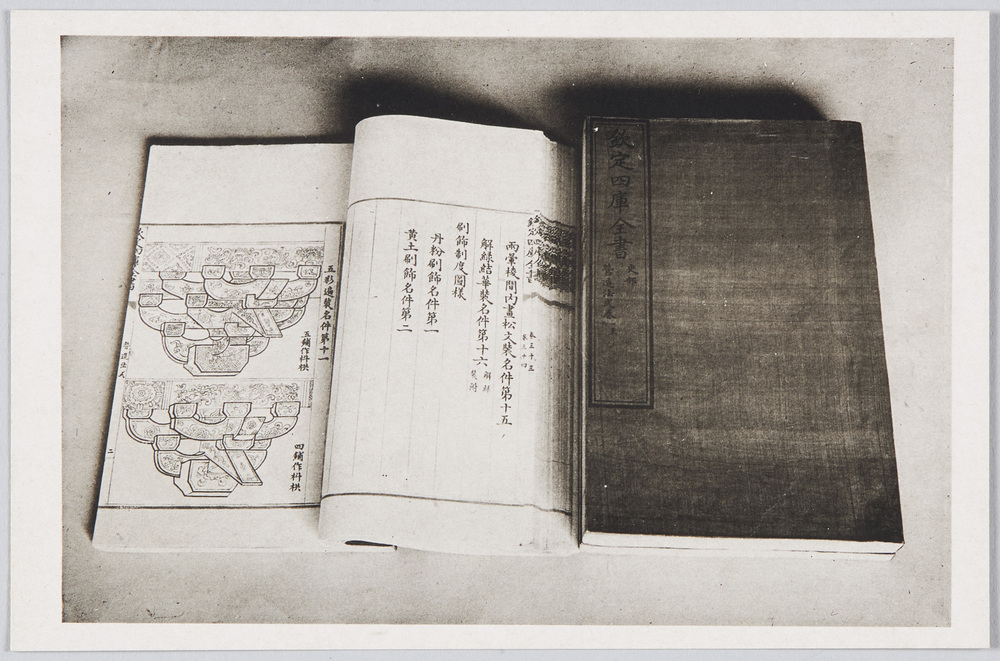 欽定四庫全書
史部
營造法式卷
兩暈棱間内畫松文裝名件第十五
解緑結華裝名件第十六 解緑裝附
刷飾制度圖樣
丹粉刷飾名件第一
黃土刷飾名件第二
五彩遍裝名件第十一
五鋪作枓栱
四鋪作枓栱